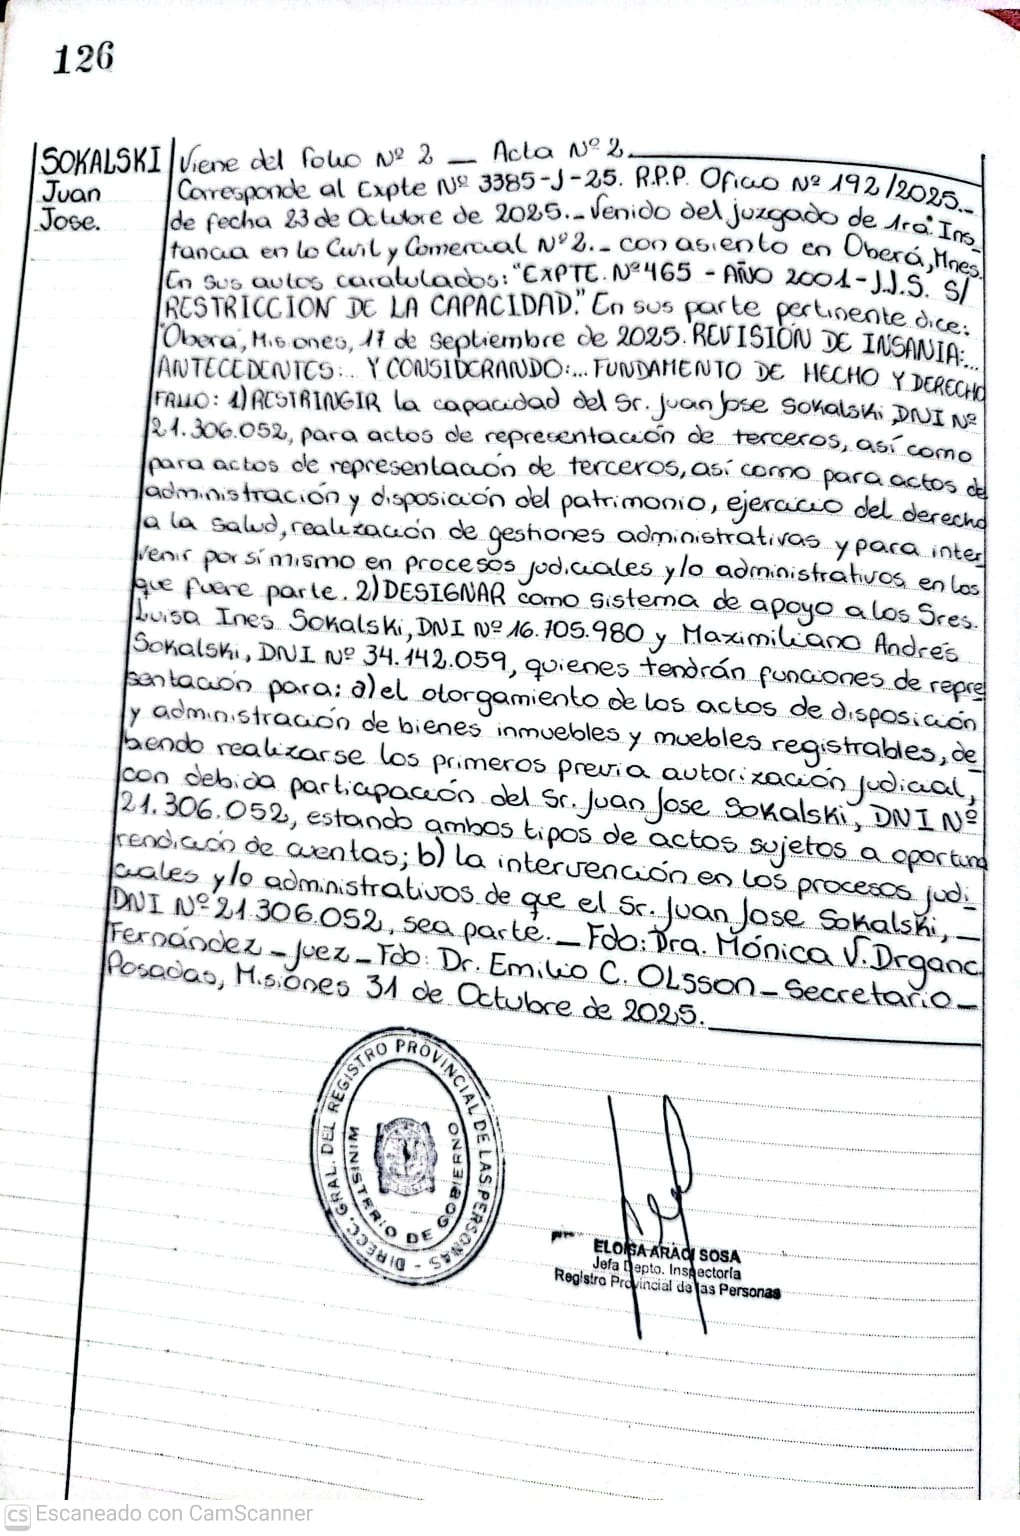 126
SOKALSKI
Juan
Jose.
Viene del folio Nº 2 — Acta Nº 2.
Corresponde al Expte Nº 3385-J-25. R.P.P. Oficio Nº 192/2025.-
de fecha 23 de Octubre de 2025.- Venido del juzgado de 1ra. Ins_
tancia en lo Civil y Comercial Nº 2.- con asiento en Oberá, Mnes.
En sus autos caratulados: "EXPTE. Nº 465 - AÑO 2001 - J.J.S. S/
RESTRICCION DE LA CAPACIDAD." En sus parte pertinente dice:
"Oberá, Misiones, 17 de septiembre de 2025. REVISIÓN DE INSANIA:...
ANTECEDENTES:... Y CONSIDERANDO:... FUNDAMENTO DE HECHO Y DERECHO
FALLO: 1) RESTRINGIR la capacidad del Sr. Juan Jose Sokalski, DNI Nº
21.306.052, para actos de representación de terceros, así como
para actos de representación de terceros, así como para actos de
administración y disposición del patrimonio, ejercicio del derecho
a la salud, realización de gestiones administrativas y para inter
venir por sí mismo en procesos judiciales y/o administrativos en los
que fuere parte. 2) DESIGNAR como sistema de apoyo a los Sres.
Luisa Ines Sokalski, DNI Nº 16.705.980 y Maximiliano Andrés
Sokalski, DNI Nº 34.142.059, quienes tendrán funciones de repre
sentación para: a) el otorgamiento de los actos de disposición
y administración de bienes inmuebles y muebles registrables, de_
biendo realizarse los primeros previa autorización judicial,
con debida participación del Sr. Juan Jose Sokalski, DNI Nº
21.306.052, estando ambos tipos de actos sujetos a oportuna
rendición de cuentas; b) la intervención en los procesos judi_
ciales y/o administrativos de que el Sr. Juan Jose Sokalski, —
DNI Nº 21.306.052, sea parte. — Fdo: Dra. Mónica V. Drganc
Fernández - Juez - Fdo: Dr. Emilio C. OLSSON - Secretario -
Posadas, Misiones 31 de Octubre de 2025.
DIRECC. GRAL. DEL REGISTRO PROVINCIAL DE LAS PERSONAS -
MINISTERIO DE GOBIERNO
ELOISA ARACI SOSA
Jefa Depto. Inspectoría
Registro Provincial de las Personas
CS Escaneado con CamScanner